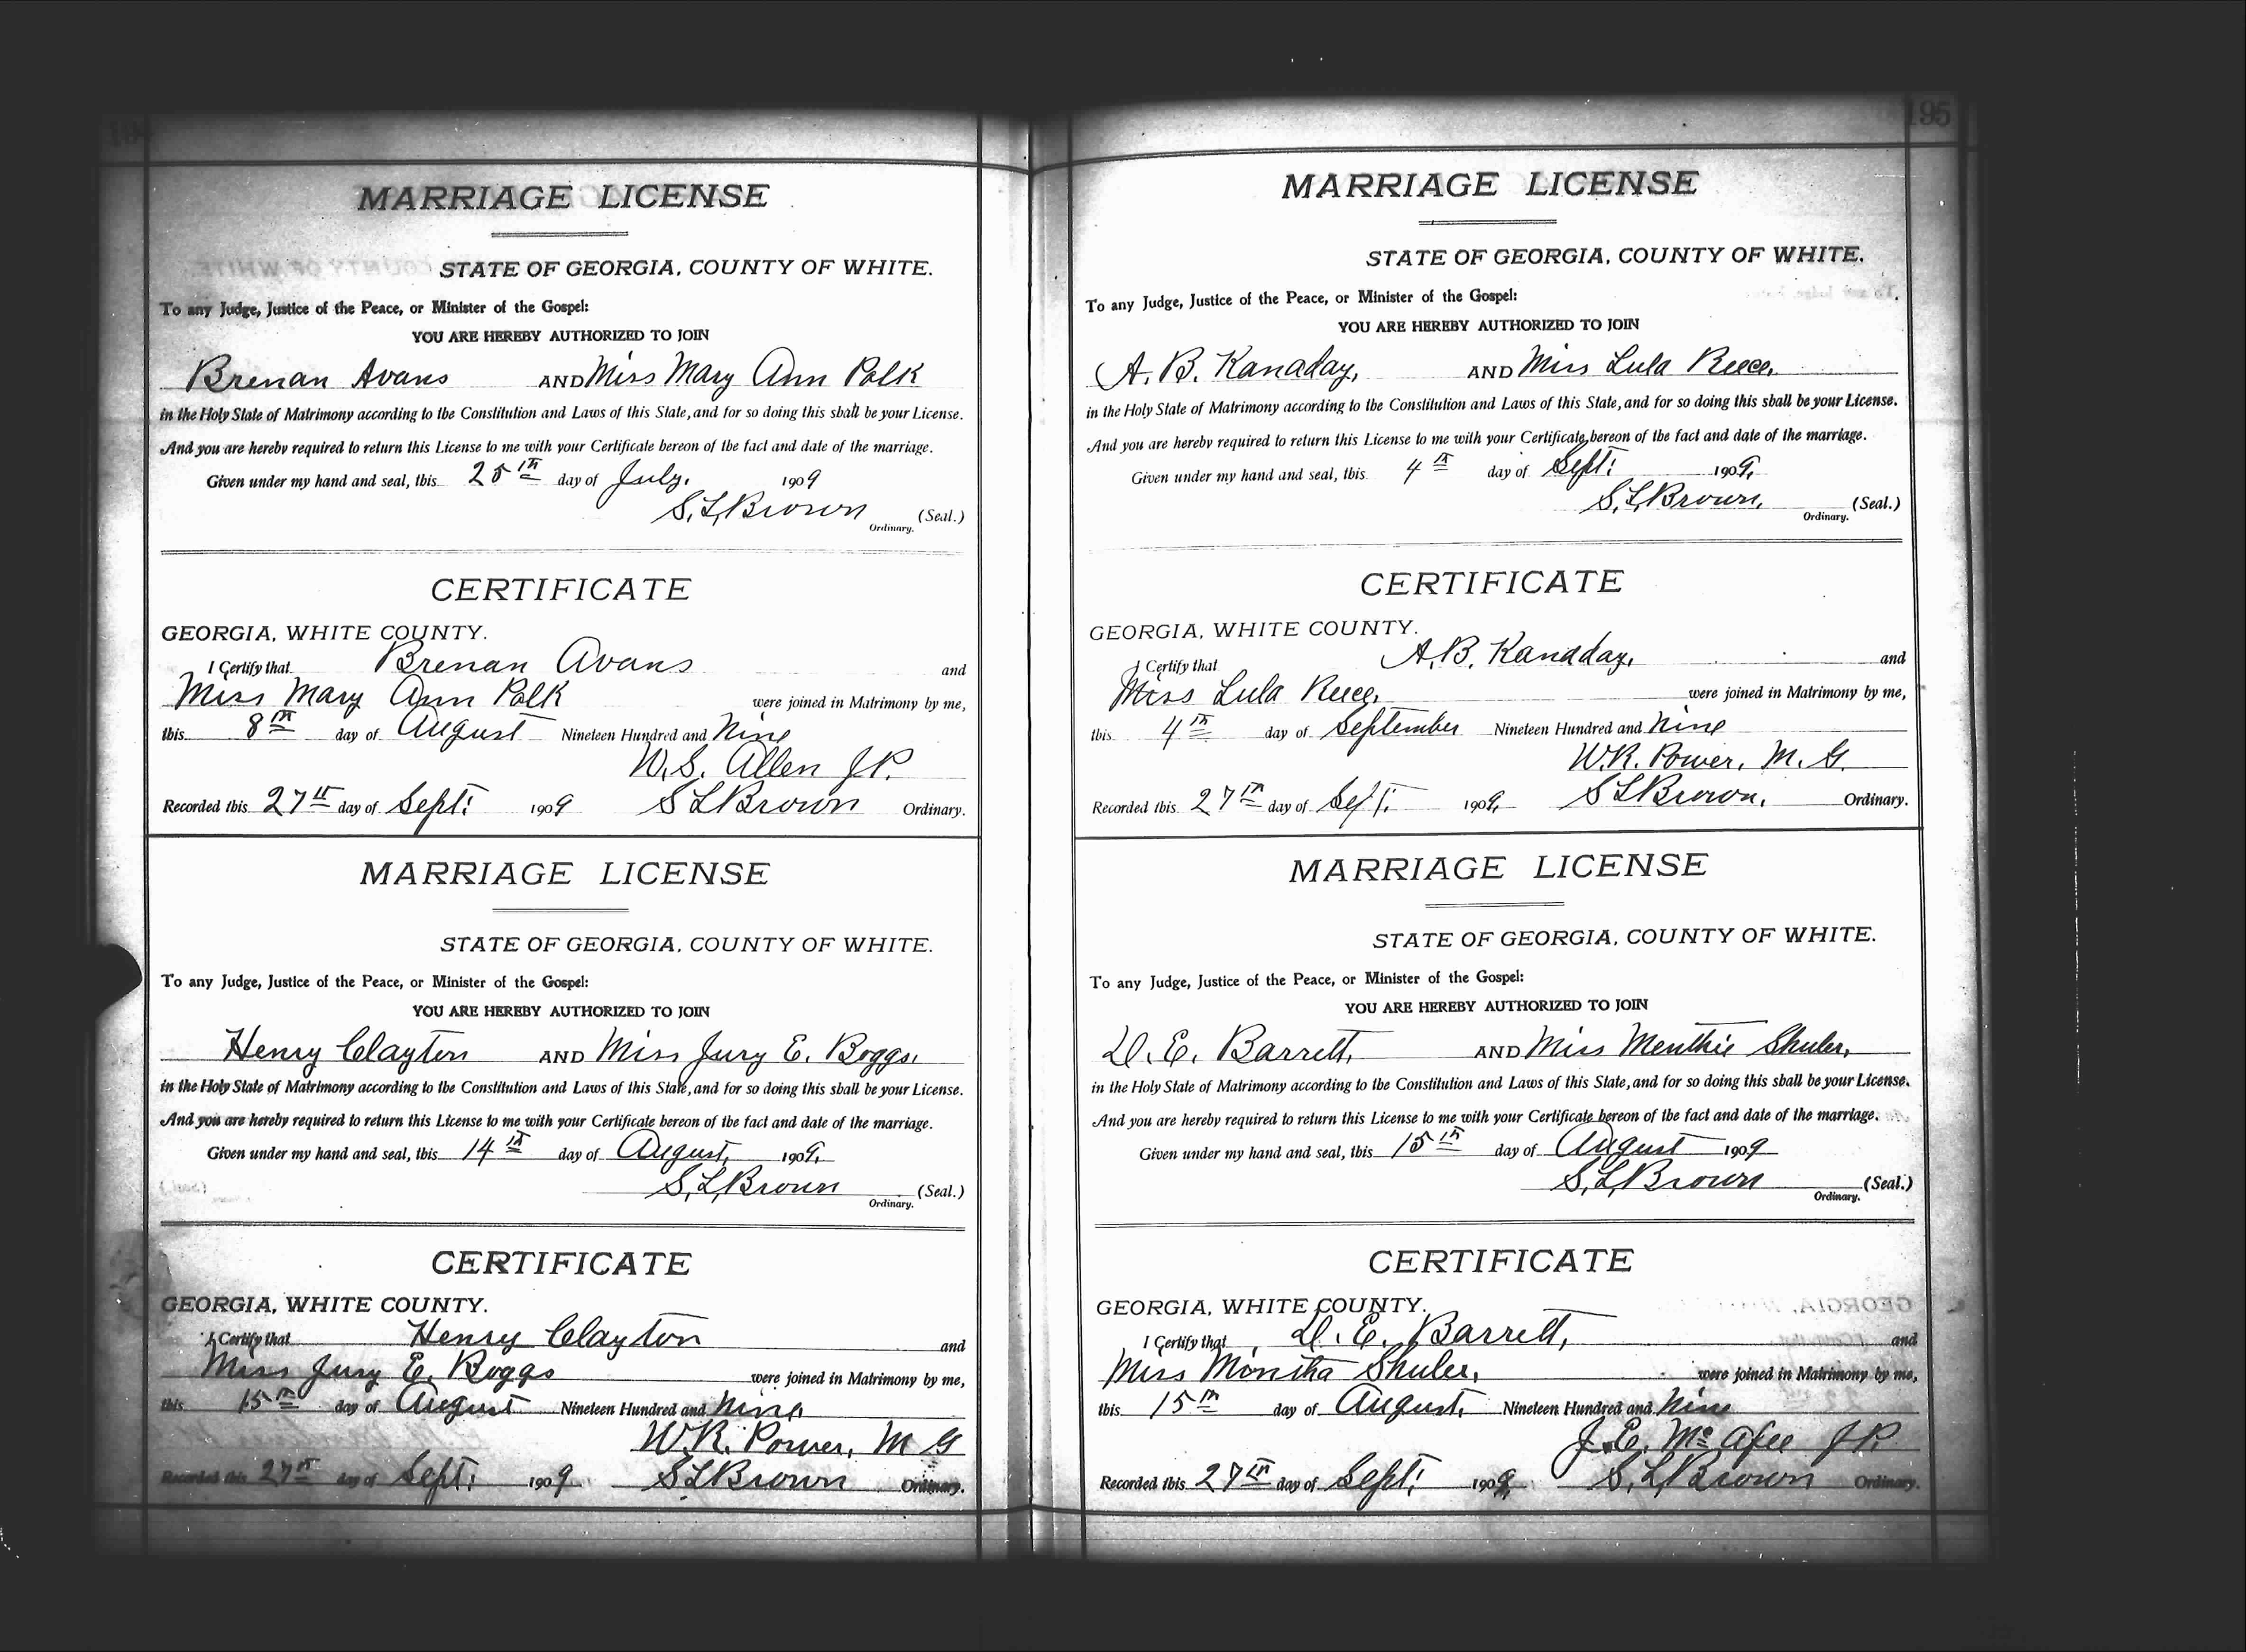 MARRIAGE LICENSE
STATE OF GEORGIA, COUNTY OF WHITE.
To any Judge, Justice of the Peace, or Minister of the Gospel:
YOU ARE HEREBY AUTHORIZED TO JOIN
Brenan Avans AND Miss Mary Ann Polk
in the Holy State of Matrimony according to the Constitution and Laws of this State, and for so doing this shall be your License.
And you are hereby required to return this License to me with your Certificate hereon of the fact and date of the marriage.
Given under my hand and seal, this 25th day of July. 1909
S. L. Brown (Seal.)
Ordinary.
CERTIFICATE
GEORGIA, WHITE COUNTY.
I Certify that Brenan Avans and
Miss Mary Ann Polk were joined in Matrimony by me,
this 8th day of August Nineteen Hundred and Nine
W. S. Allen J.P.
Recorded this 27th day of Sept: 1909 S L Brown Ordinary.
MARRIAGE LICENSE
STATE OF GEORGIA, COUNTY OF WHITE.
To any Judge, Justice of the Peace, or Minister of the Gospel:
YOU ARE HEREBY AUTHORIZED TO JOIN
Henry Clayton AND Miss Jury E. Boggs.
in the Holy State of Matrimony according to the Constitution and Laws of this State, and for so doing this shall be your License.
And you are hereby required to return this License to me with your Certificate hereon of the fact and date of the marriage.
Given under my hand and seal, this 14th day of August, 1909.
S. L. Brown (Seal.)
Ordinary.
CERTIFICATE
GEORGIA, WHITE COUNTY.
I Certify that Henry Clayton and
Miss Jury E. Boggs were joined in Matrimony by me,
this 15th day of August Nineteen Hundred and Nine,
W. R. Power, M G
Recorded this 27th day of Sept: 1909 S L Brown Ordinary.
195
MARRIAGE LICENSE
STATE OF GEORGIA, COUNTY OF WHITE.
To any Judge, Justice of the Peace, or Minister of the Gospel:
YOU ARE HEREBY AUTHORIZED TO JOIN
A. B. Kanaday, AND Miss Lula Reece,
in the Holy State of Matrimony according to the Constitution and Laws of this State, and for so doing this shall be your License.
And you are hereby required to return this License to me with your Certificate hereon of the fact and date of the marriage.
Given under my hand and seal, this 4th day of Sept: 1909,
S. L. Brown, (Seal.)
Ordinary.
CERTIFICATE
GEORGIA, WHITE COUNTY.
I Certify that A. B. Kanaday, and
Miss Lula Reece, were joined in Matrimony by me,
this 4th day of September Nineteen Hundred and Nine
W. R. Power, M. G.
Recorded this 27th day of Sept: 1909, S L Brown, Ordinary.
MARRIAGE LICENSE
STATE OF GEORGIA, COUNTY OF WHITE.
To any Judge, Justice of the Peace, or Minister of the Gospel:
YOU ARE HEREBY AUTHORIZED TO JOIN
D. E. Barrett, AND Miss Menthie Shuler,
in the Holy State of Matrimony according to the Constitution and Laws of this State, and for so doing this shall be your License.
And you are hereby required to return this License to me with your Certificate hereon of the fact and date of the marriage.
Given under my hand and seal, this 15th day of August 1909
S. L. Brown (Seal.)
Ordinary.
CERTIFICATE
GEORGIA, WHITE COUNTY.
I Certify that D. E. Barrett, and
Miss Montha Shuler, were joined in Matrimony by me,
this 15th day of August, Nineteen Hundred and Nine
J. E. McAfee J.P.
Recorded this 27th day of Sept: 1909, S. L. Brown Ordinary.